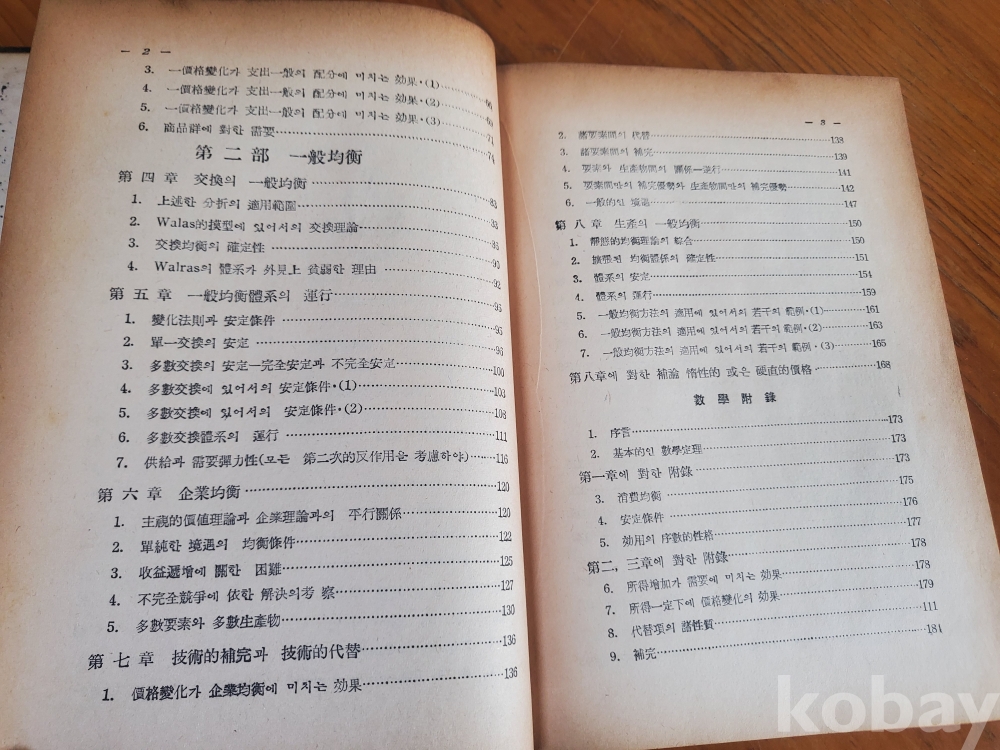 — 2 —
3. 一價格變化가 支出一般의 配分에 미치는 効果·(1)
4. 一價格變化가 支出一般의 配分에 미치는 効果·(2)
5. 一價格變化가 支出一般의 配分에 미치는 効果·(3) 71
6. 商品群에 對한 需要 74
第二部 一般均衡
第四章 交換의 一般均衡 83
1. 上述한 分析의 適用範圍 83
2. Walas的模型에 있어서의 交換理論 86
3. 交換均衡의 確定性 90
4. Walras의 體系가 外見上 貧弱한 理由 92
第五章 一般均衡體系의 運行 95
1. 變化法則과 安定條件 95
2. 單一交換의 安定 96
3. 多數交換의 安定—完全安定과 不完全安定 100
4. 多數交換에 있어서의 安定條件·(1) 103
5. 多數交換에 있어서의 安定條件·(2) 108
6. 多數交換體系의 運行 111
7. 供給과 需要彈力性(모든 第二次的反作用을 考慮하야) 116
第六章 企業均衡 120
1. 主観的價値理論과 企業理論과의 平行關係 120
2. 單純한 境遇의 均衡條件 122
3. 收益遞增에 關한 困難 125
4. 不完全競爭에 依한 解決의 考察 127
5. 多數要素와 多數生產物 130
第七章 技術的補完과 技術的代替 136
1. 價格變化가 企業均衡에 미치는 効果 136
— 3 —
2. 諸要素間의 代替 138
3. 諸要素間의 補完 139
4. 要素와 生產物間의 關係—逆行 141
5. 要素間만의 補完優勢와 生產物間만의 補完優勢 142
6. 一般的인 境遇 147
第八章 生產의 一般均衡 150
1. 靜態的均衡理論의 綜合 150
2. 擴張된 均衡體係의 確定性 151
3. 體系의 安定 154
4. 體系의 運行 159
5. 一般均衡方法의 適用에 있어서의 若干의 範例·(1) 161
6. 一般均衡方法의 適用에 있어서의 若干의 範例·(2) 163
7. 一般均衡方法의 適用에 있어서의 若干의 範例·(3) 165
第八章에 對한 補論 惰性的 或은 硬直的價格 168
數學附錄
1. 序言 173
2. 基本的인 數學定理 173
第一章에 對한 附錄 173
3. 消費均衡 175
4. 安定條件 176
5. 効用의 序數的性格 177
第二, 三章에 對한 附錄 178
6. 所得增加가 需要에 미치는 効果 178
7. 所得一定下에 價格變化의 効果 179
8. 代替項의 諸性質 111
9. 補完 181
kobay